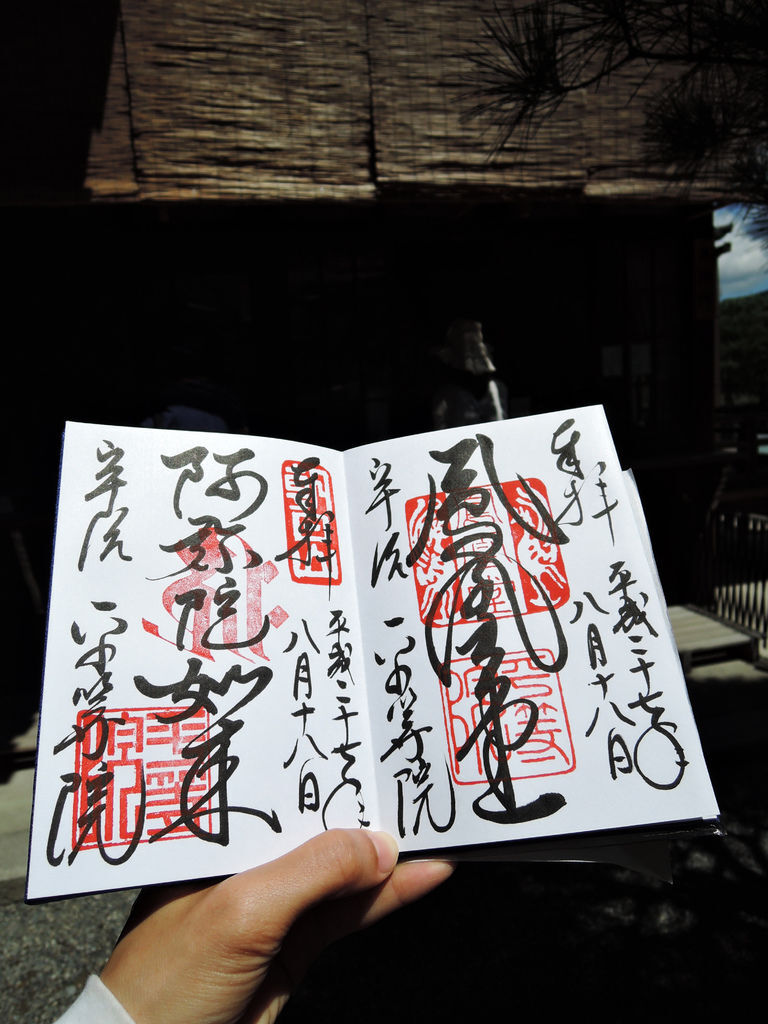 奉拝
平成二十七年
八月十八日
鳳凰堂
宇治
平等院
奉拝
平成二十七年
八月十八日
阿弥陀如来
宇治
平等院